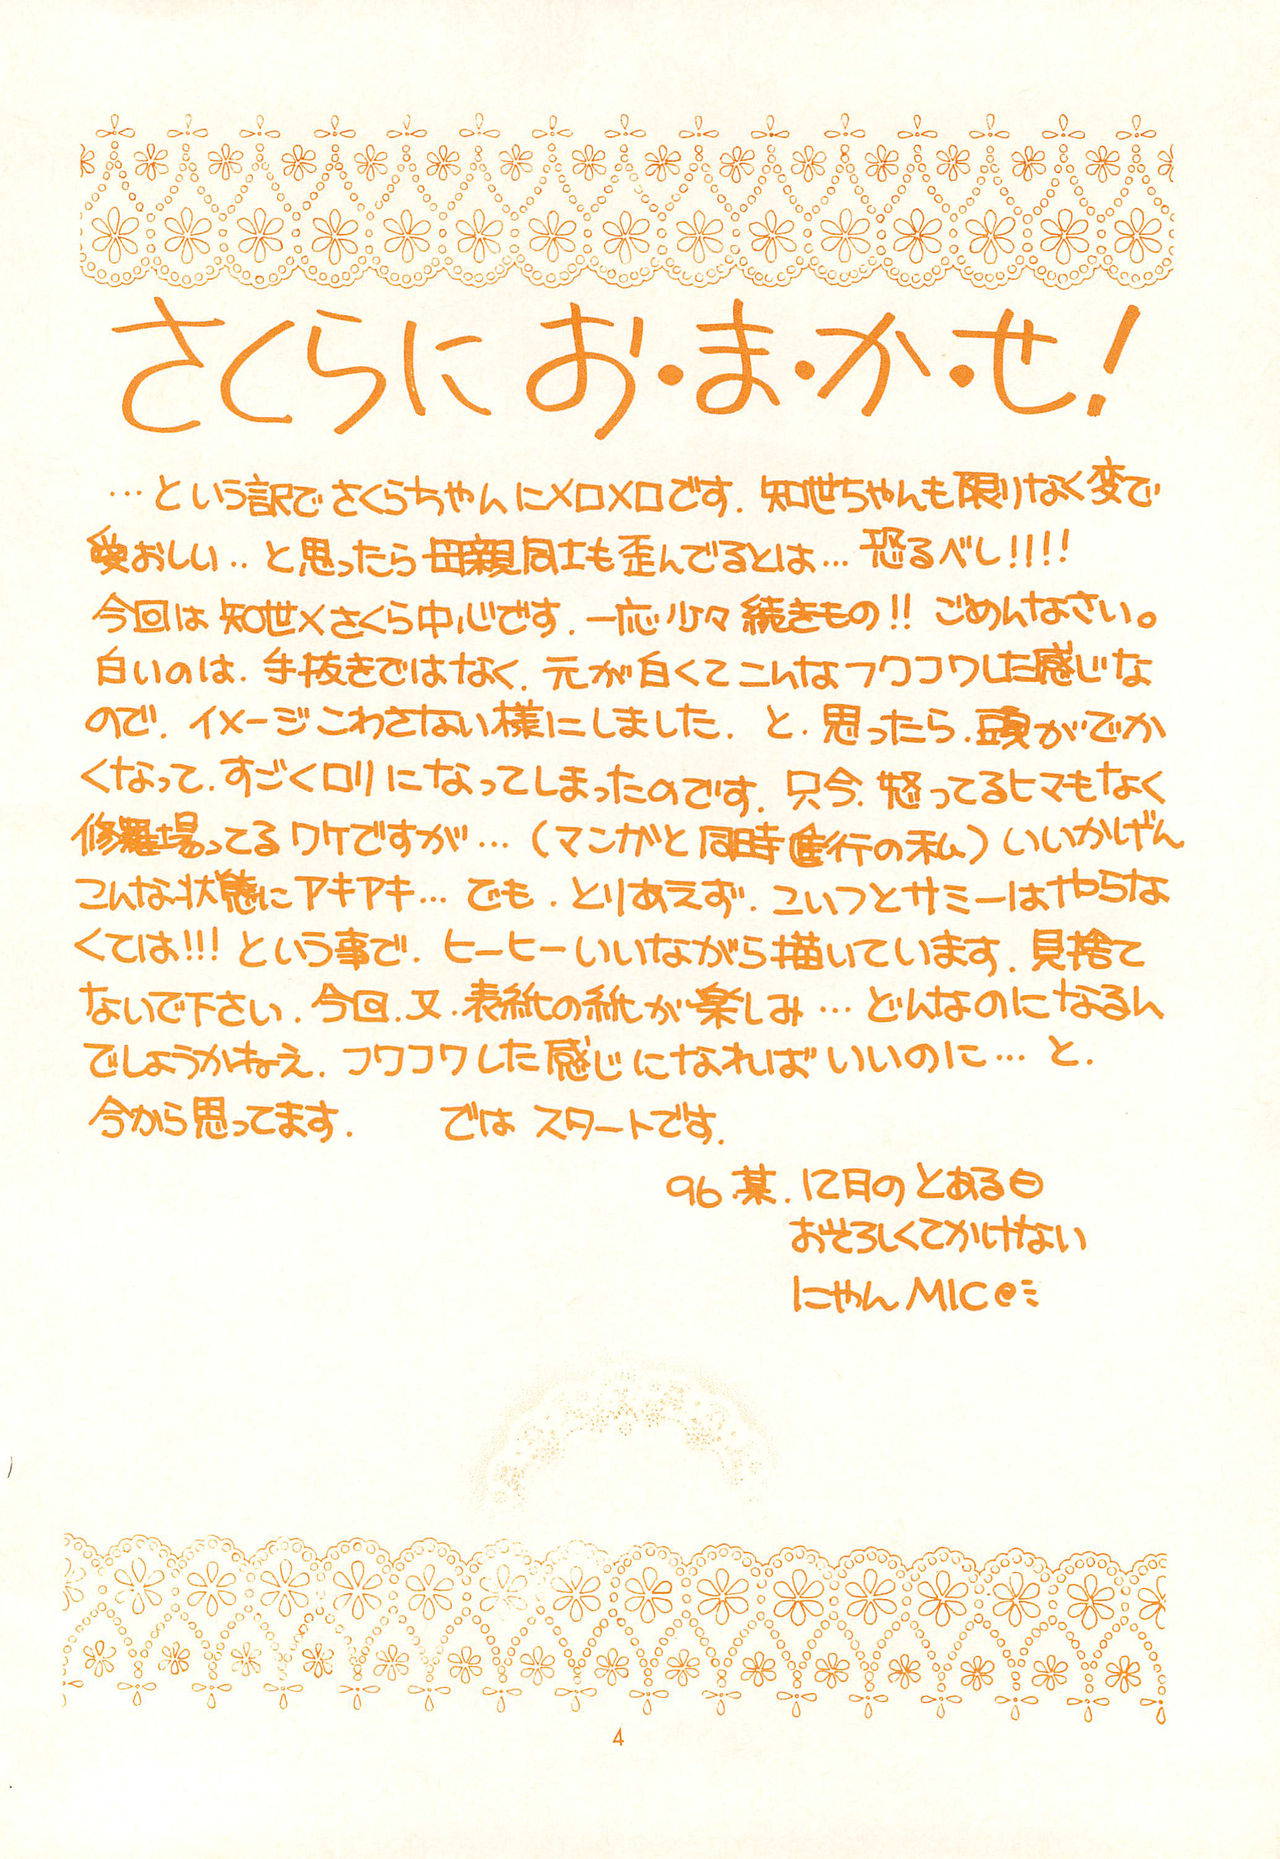 さくらに お・ま・か・せ!
…という訳でさくらちゃんにメロメロです. 知世ちゃんも限りなく変で
愛おしい‥と思ったら母親同士も歪んでるとは… 恐るべし!!!!
今回は知世×さくら中心です. 一応少々続きもの!! ごめんなさい。
白いのは. 手抜きではなく. 元が白くてこんなフワコワした感じな
ので. イメージこわさない様にしました. と. 思ったら. 頭がでか
くなって. すごくロリになってしまったのです. 只今. 怒ってるヒマもなく
修羅場ってるワケですが… (マンガと同時進行の私) いいかげん
こんな状態にアキアキ… でも. とりあえず. こいつとサミーはやらな
くては!!! という事で. ヒーヒーいいながら描いています. 見捨て
ないで下さい. 今回. 又. 表紙の紙が楽しみ… どんなのになるん
でしょうかねえ. フワコワした感じになればいいのに… と.
今から思ってます. では スタートです.
96.某. 12月のとある日
おそろしくてかけない
にゃんMIC
4